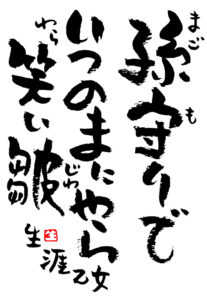 孫守りで
いつのまにやら
笑い皺
生涯乙女
まご
も
わら
じわ
生